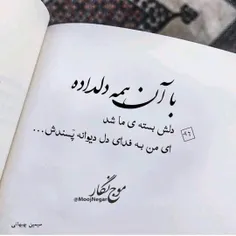 با آن همه دلداده
دلش بسته ی ما شد
ای من به فدای دل دیوانه پسندش...
۹۶
موج نگار
@MoojNegar
سیمین بهبهانی